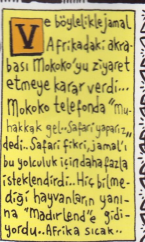 Ve böyleliklejamal
Afrikadaki akra-
bası Mokoko'yu ziyaret
etmeye karar verdi...
Mokoko telefonda "mu-
hakkak gel.. Safari yaparız"
dedi.. Safari fikri, jamal'ı
bu yolculuk için daha fazla
isteklendirdi.. Hiç bilme-
diği hayvanların yanı-
na "Madırlend'e gidi-
yordu.. Afrika sıcak..